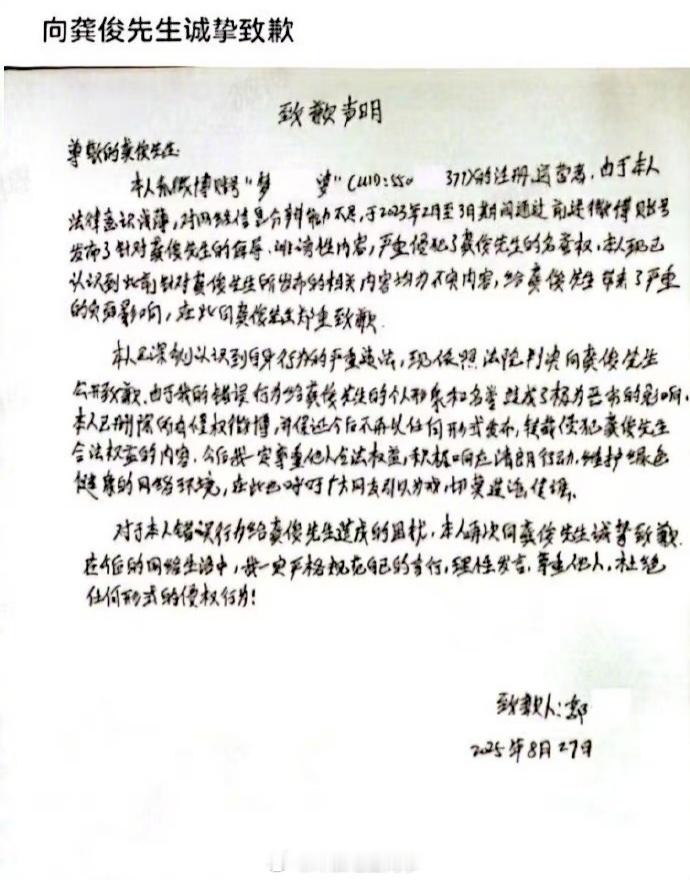 向龚俊先生诚挚致歉
致歉声明
尊敬的龚俊先生:
本人系微博账号"梦 梦"(UID:550 377)的注册、运营者,由于本人
法律意识浅薄,对网络信息分辨能力不足,于2023年2月至3月期间通过前述微博账号
发布了针对龚俊先生的侮辱、诽谤性内容,严重侵犯了龚俊先生的名誉权,本人现已
认识到此前针对龚俊先生所发布的相关内容均为不实内容,给龚俊先生带来了严重
的负面影响,在此向龚俊先生郑重致歉.
本人已深刻认识到自身行为的严重违法,现依照法院判决向龚俊先生
公开致歉.由于我的错误行为给龚俊先生的个人形象和名誉造成了极为恶劣的影响,
本人已删除所有侵权微博,并保证今后不再以任何形式发布,转载侵犯龚俊先生
合法权益的内容.今后我一定尊重他人合法权益,积极响应清朗行动,维护绿色
健康的网络环境,在此也呼吁广大网友引以为戒,切莫造谣、侵权.
对于本人错误行为给龚俊先生造成的困扰,本人再次向龚俊先生诚挚致歉.
在今后的网络生活中,我一定严格规范自己的言行,理性发言,尊重他人,杜绝
任何形式的侵权行为!
致歉人:郭
2025年8月27日